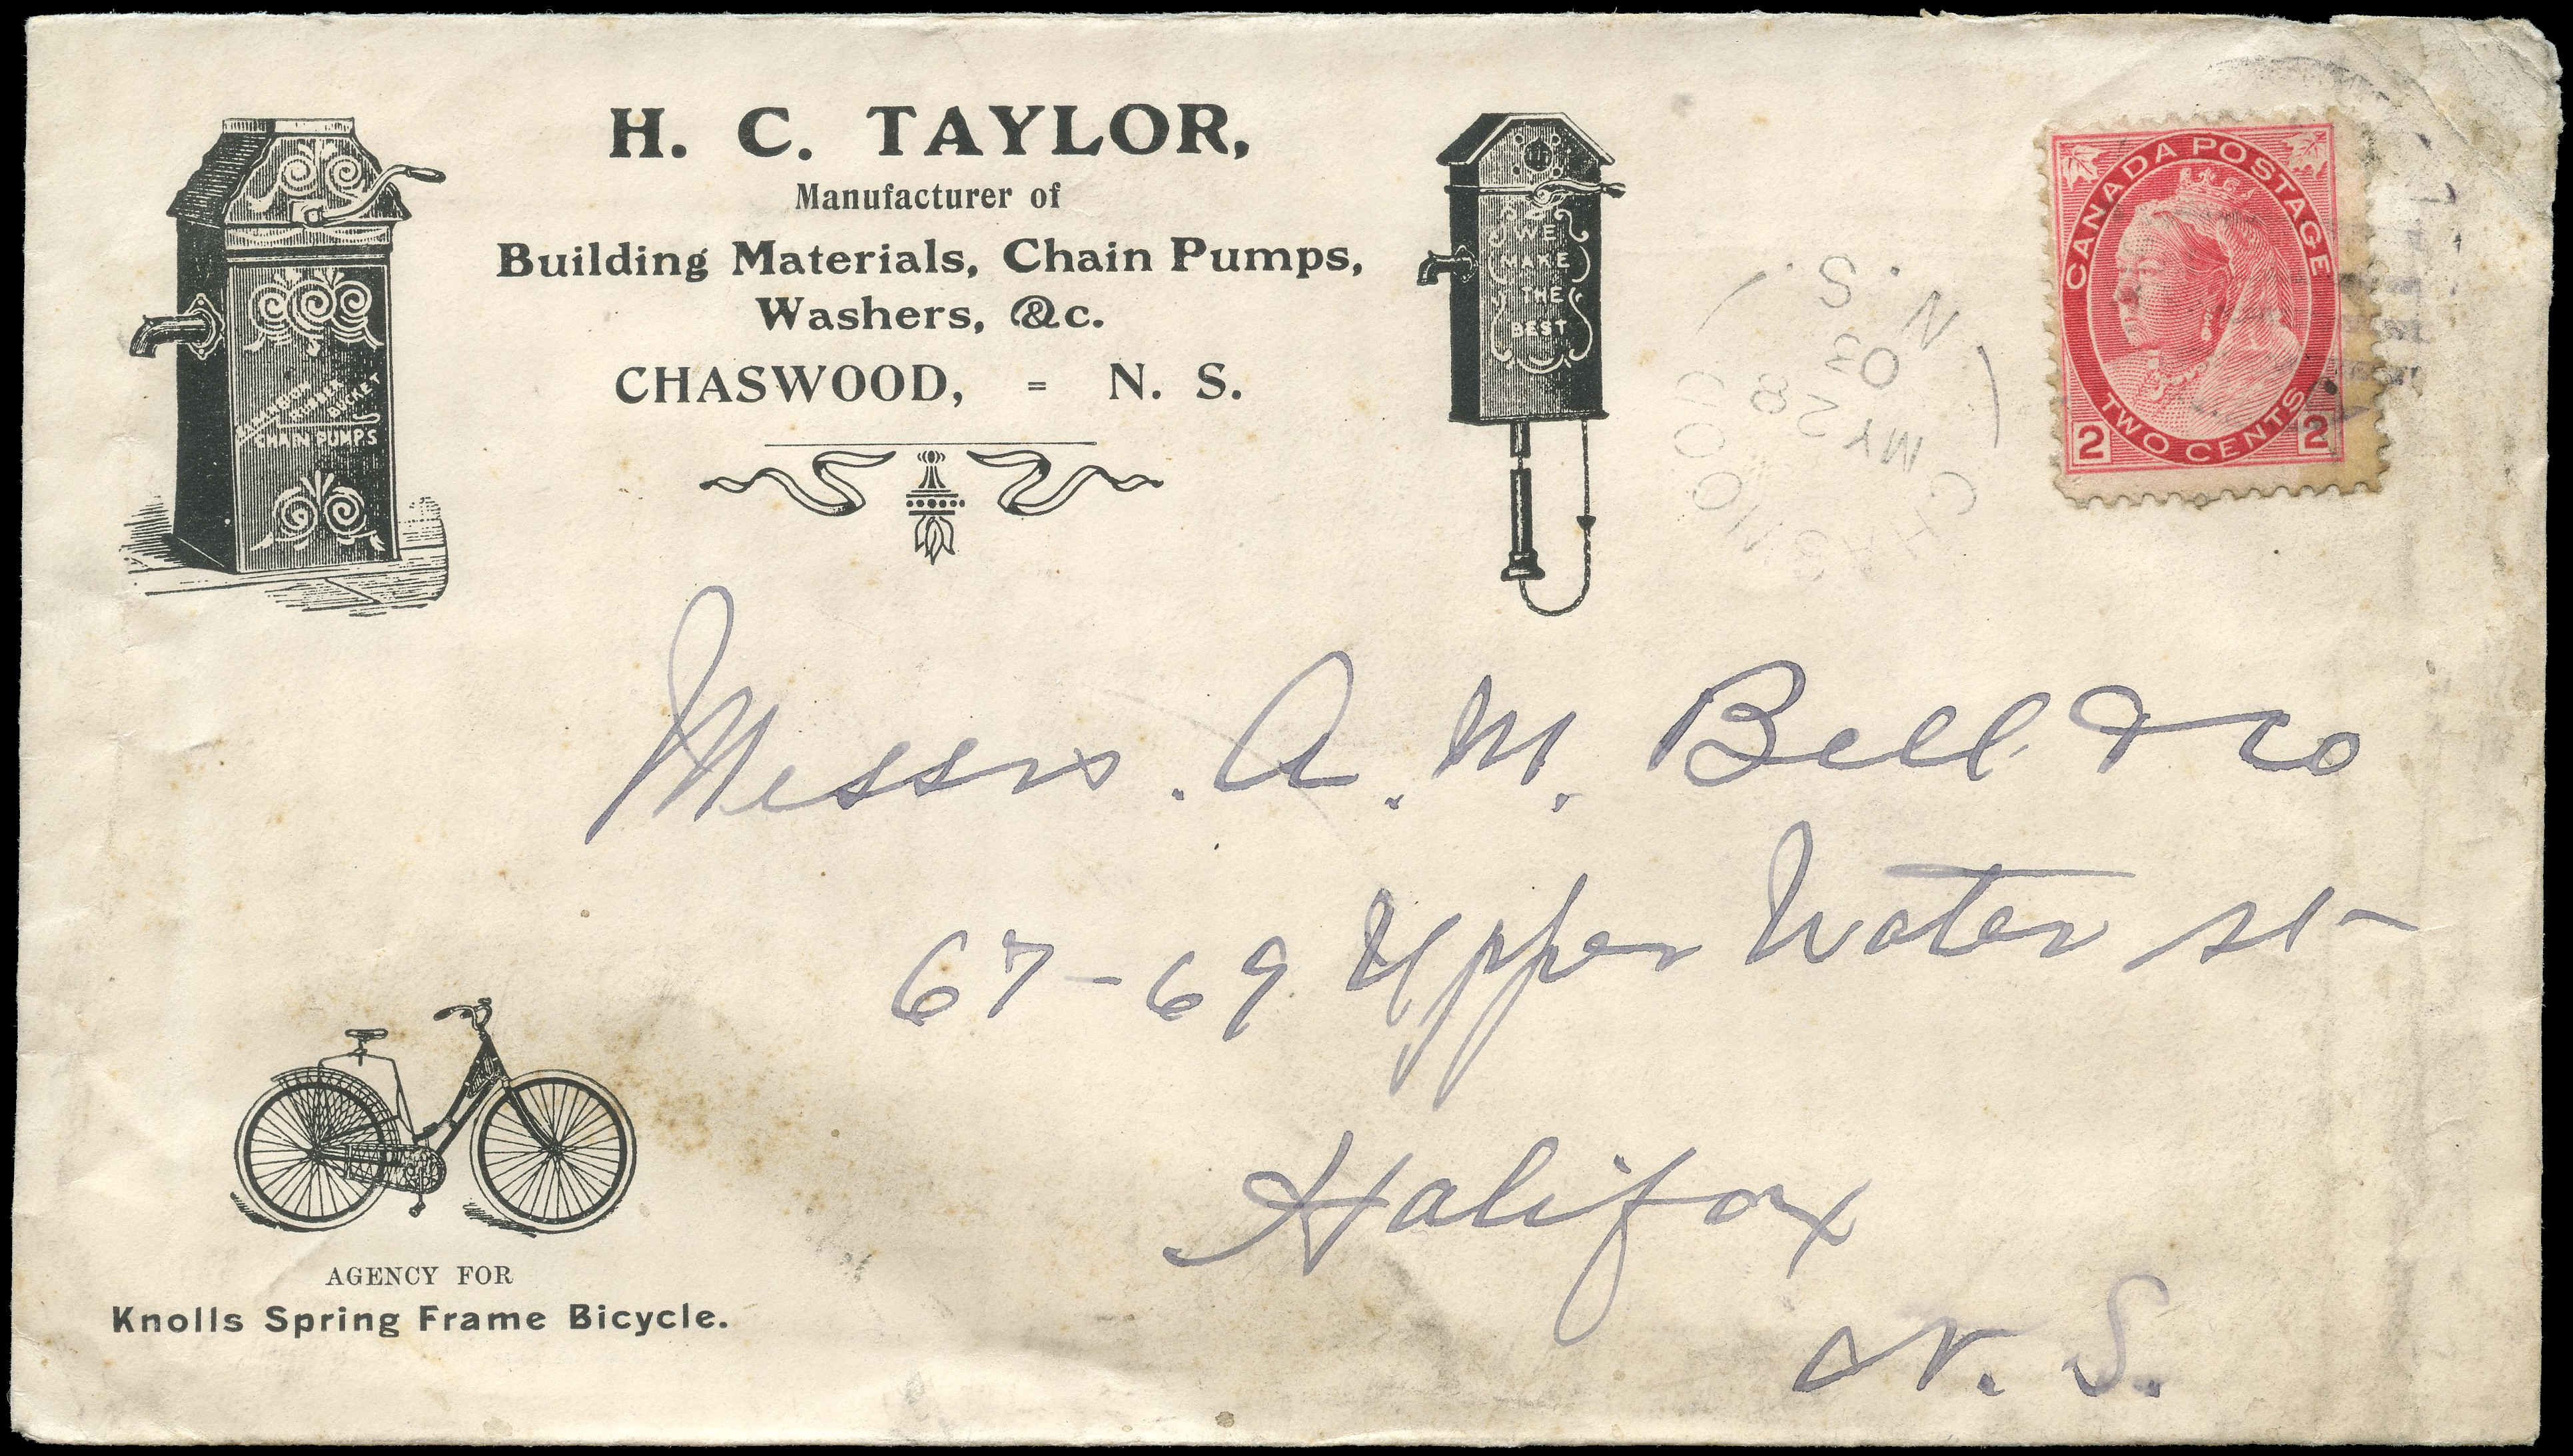 H. C. TAYLOR,
Manufacturer of
Building Materials, Chain Pumps,
Washers, &c.
CHASWOOD, = N. S.
RUBBER
BUCKET
CHAIN PUMPS
WE
MAKE
THE
BEST
CHASWOOD
MY 28
03
N. S.
CANADA POSTAGE
TWO CENTS
2 2
Messrs. A. M. Bell & Co
67-69 Upper Water St
Halifax
N. S.
AGENCY FOR
Knolls Spring Frame Bicycle.